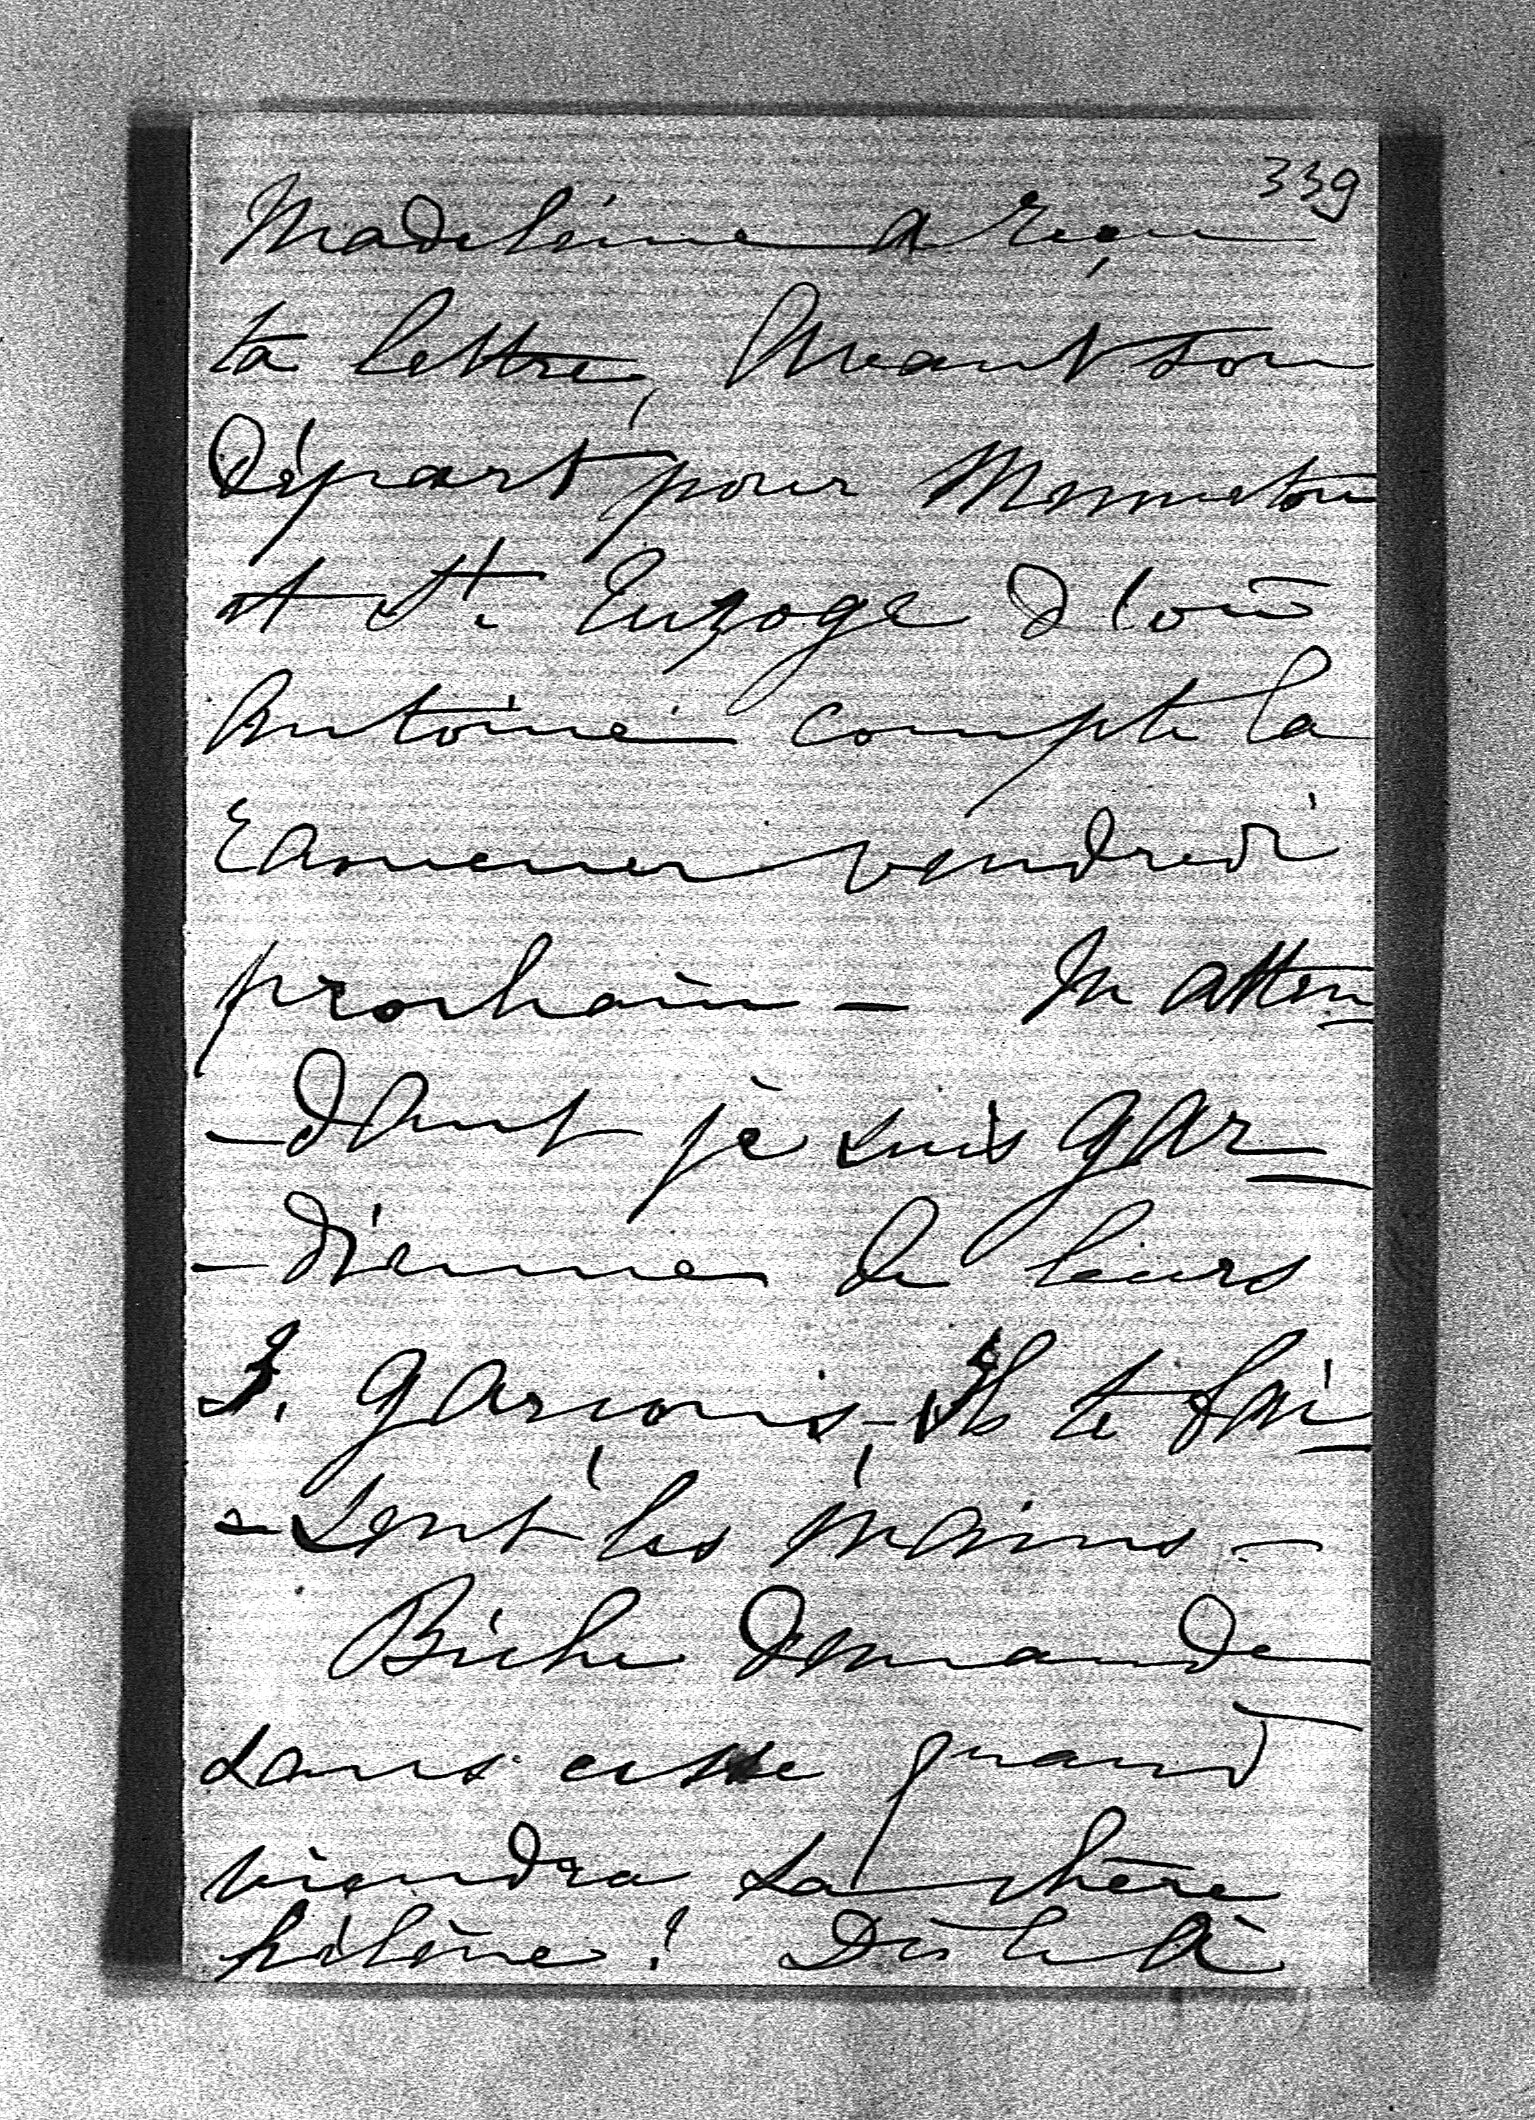 339
Madeleine a reçu
ta lettre, avant son
départ pour Monneton
et St. Euzoge d'où
Antoine compte la
ramener vendredi
prochain — En atten
-dant je suis gar-
-dienne de leurs
3. garçons, — Ils te bai
-sent les mains —
Biche demande
sans cesse quand
viendra sa chère
hélène! Dis le à